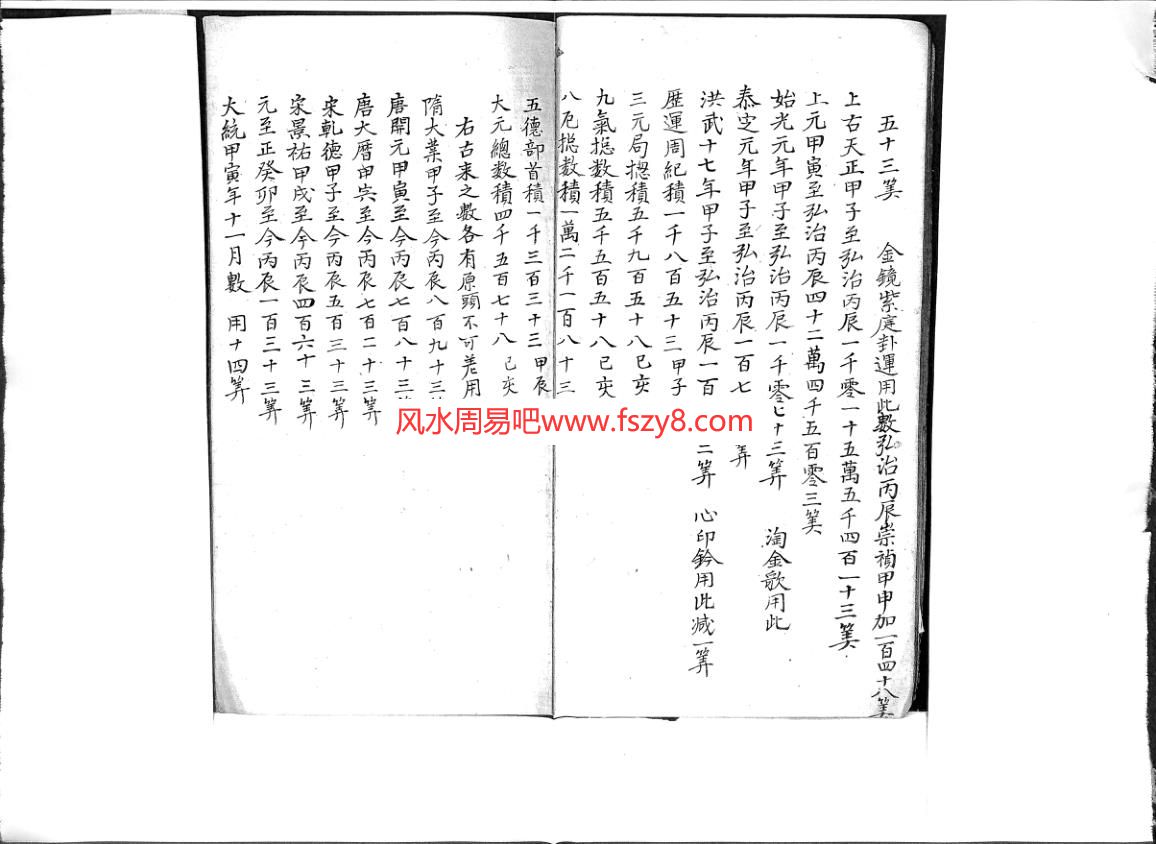 五十三筭　金鏡紫庭卦運用此數弘治丙辰崇禎甲申加一百四十八筭
上古天正甲子至弘治丙辰一千零一十五萬五千四百一十三筭
上元甲寅至弘治丙辰四十二萬四千五百零三筭
始光元年甲子至弘治丙辰一千零七十三筭　淘金歌用此
泰定元年甲子至弘治丙辰一百七 筭
洪武十七年甲子至弘治丙辰一百 二筭　心印鈐用此减一筭
歷運周紀積一千八百五十三甲子
三元局揔積五千九百五十八己亥
九氣揔数積五千五百五十八己亥
八厄揔数積一萬二千一百八十三
五德部首積一千三百三十三甲辰
大元總数積四千五百七十八己亥
右古来之數各有原頭不可差用
隋大業甲子至今丙辰八百九十三
唐開元甲寅至今丙辰七百八十三
唐大曆甲寅至今丙辰七百二十三筭
宋乾德甲子至今丙辰五百三十三筭
宋景祐甲戌至今丙辰四百六十三筭
元至正癸卯至今丙辰一百三十三筭
大統甲寅年十一月數　用十四筭
风水周易吧www.fszy8.com